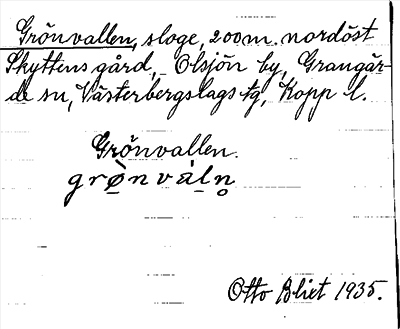 Grönvallen, sloge, 200 m. nordöst
Skyttens gård, Olsjön by, Grangär-
de sn, Västerbergslags tg, Kopp l.
Grönvallen.
grø̀nvàln̥
Otto Blixt 1935.